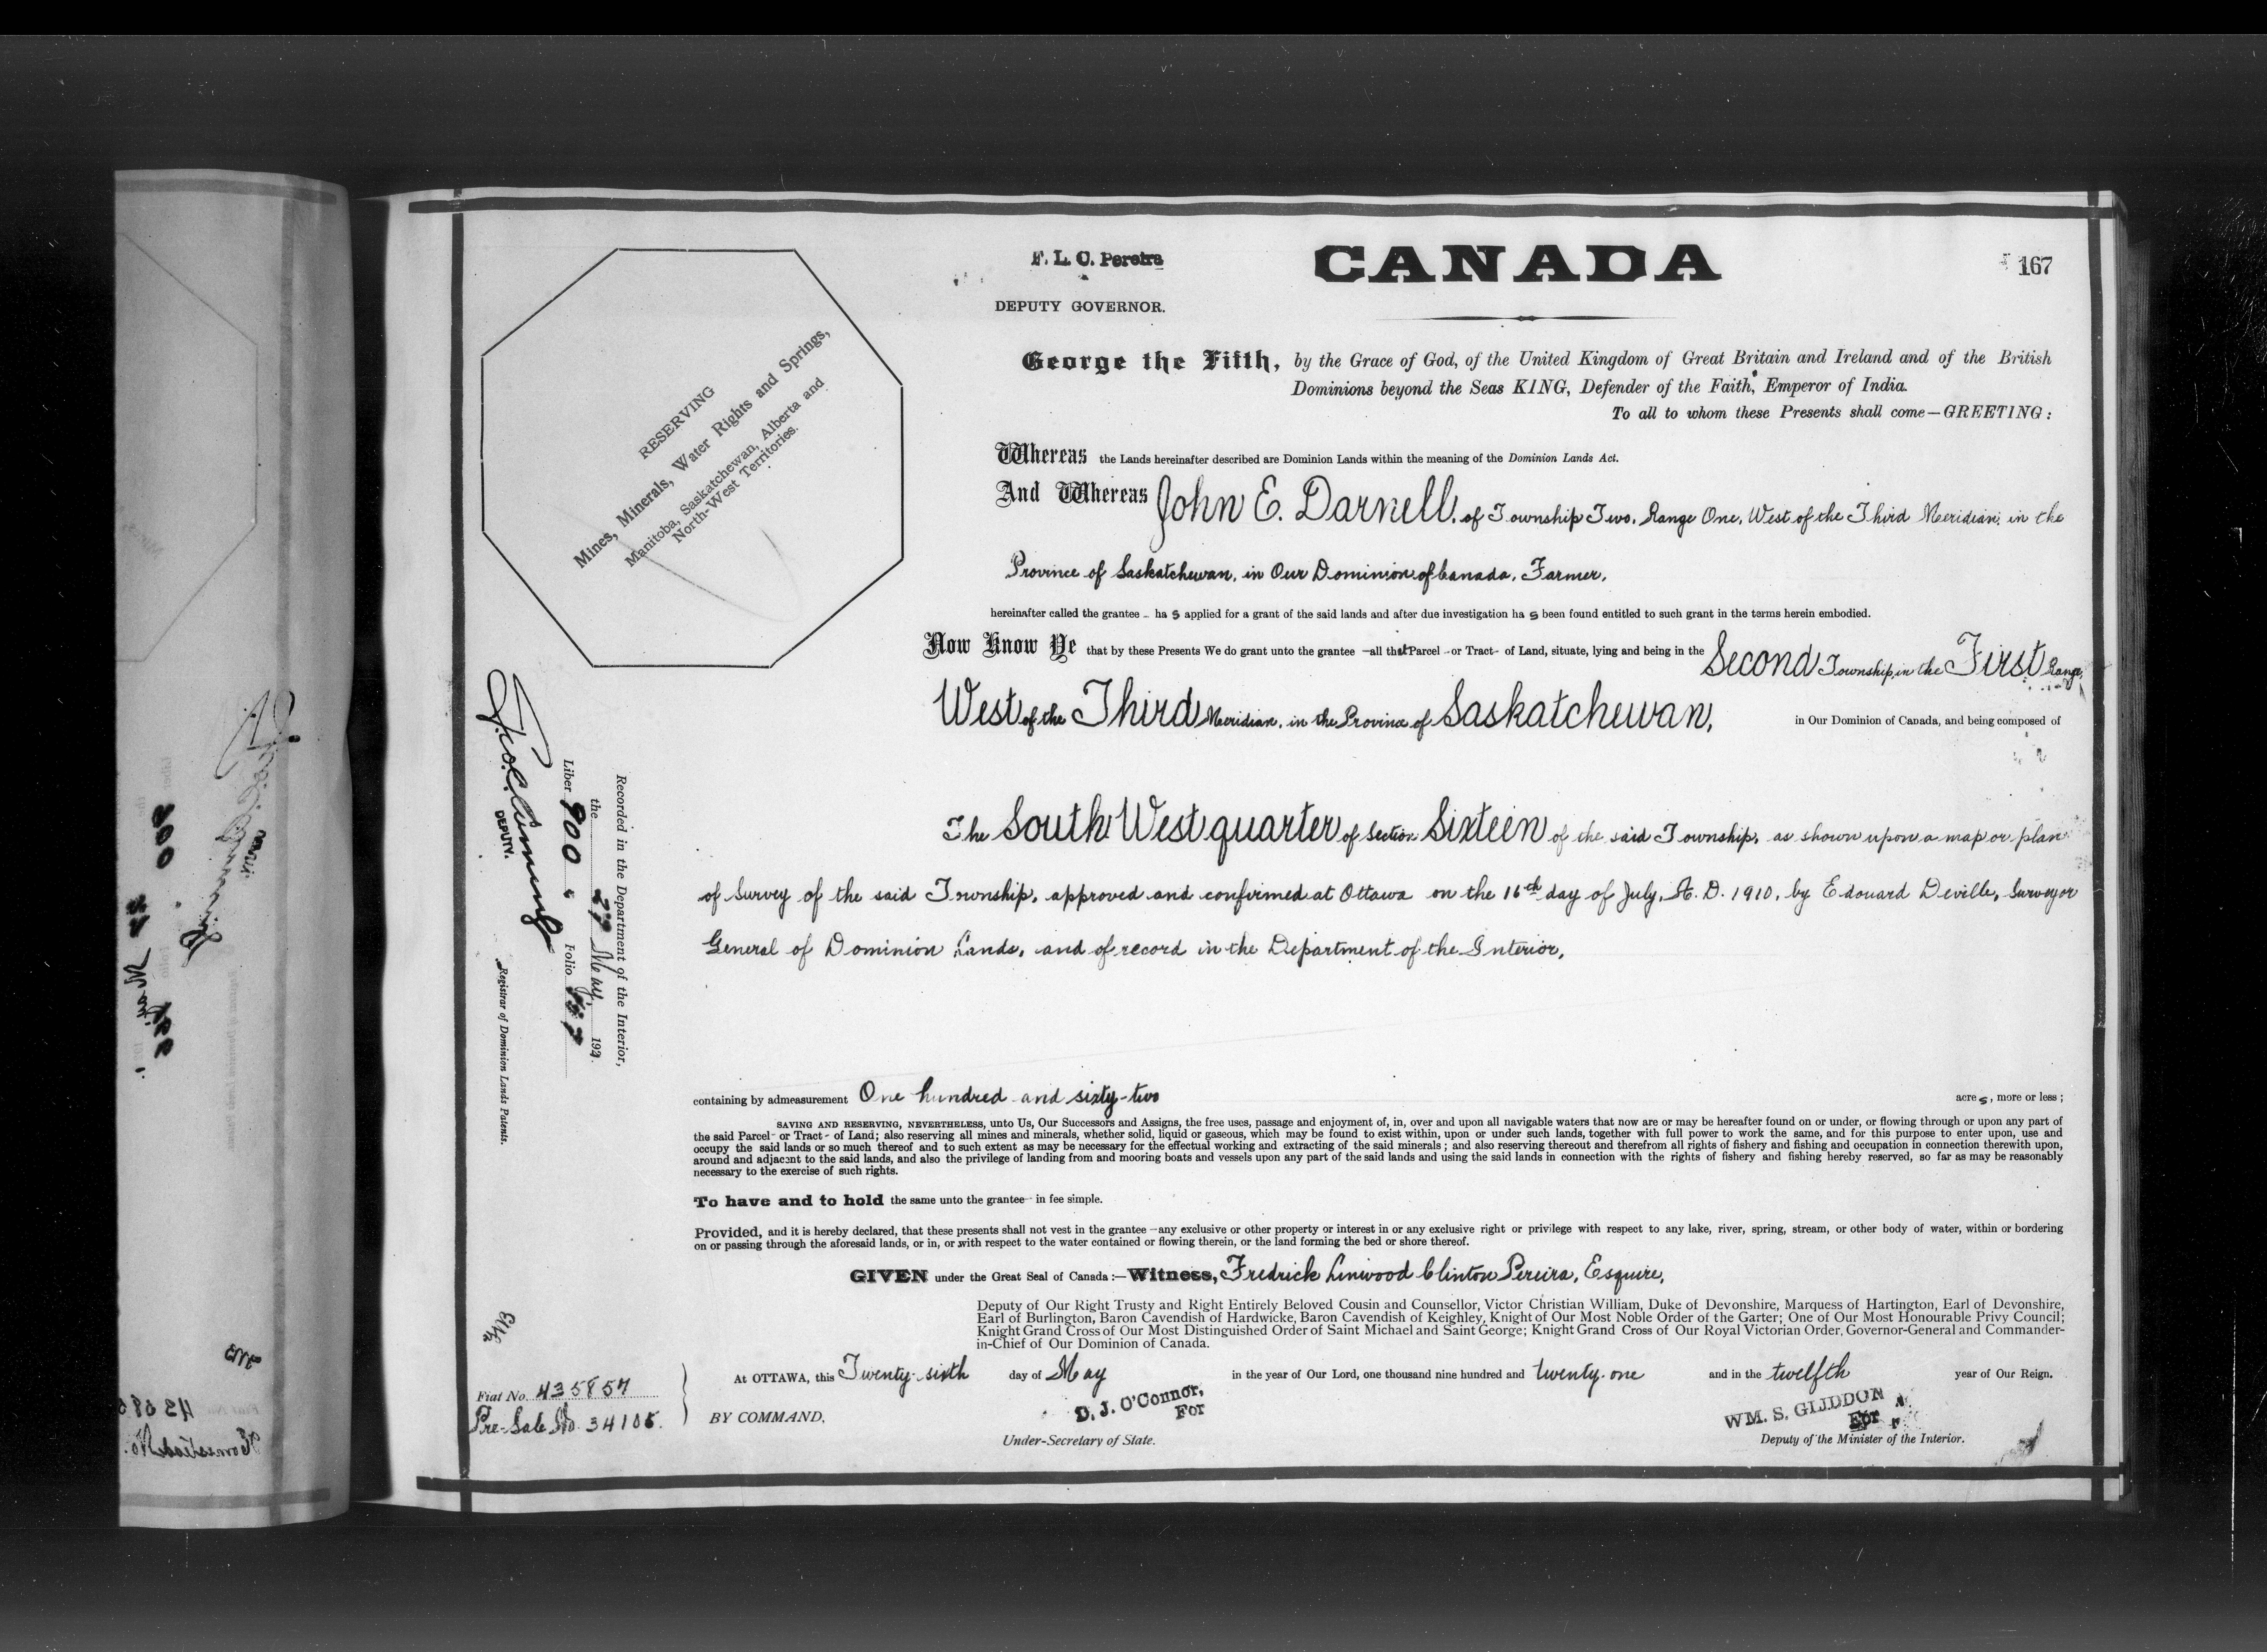 F. L. C. Pereira
DEPUTY GOVERNOR.
CANADA
167
RESERVING
Mines, Minerals, Water Rights and Springs,
Manitoba, Saskatchewan, Alberta and
North-West Territories.
George the Fifth, by the Grace of God, of the United Kingdom of Great Britain and Ireland and of the British
Dominions beyond the Seas KING, Defender of the Faith, Emperor of India.
To all to whom these Presents shall come—GREETING:
Whereas the Lands hereinafter described are Dominion Lands within the meaning of the Dominion Lands Act.
And Whereas John E. Darnell, of Township Two, Range One, West of the Third Meridian, in the
Province of Saskatchewan, in Our Dominion of Canada, Farmer,
hereinafter called the grantee - ha s applied for a grant of the said lands and after due investigation ha s been found entitled to such grant in the terms herein embodied.
Now Know Ye that by these Presents We do grant unto the grantee —all that Parcel - or Tract- of Land, situate, lying and being in the Second Township, in the First Range,
West of the Third Meridian, in the Province of Saskatchewan, in Our Dominion of Canada, and being composed of
The South West quarter of Section Sixteen of the said Township, as shown upon a map or plan
of Survey of the said Township, approved and confirmed at Ottawa on the 16th day of July, A. D. 1910, by Edouard Deville, Surveyor
General of Dominion Lands, and of record in the Department of the Interior,
Recorded in the Department of the Interior,
the 27 May, 192
Liber 900 Folio
DEPUTY.
Registrar of Dominion Lands Patents.
containing by admeasurement One hundred and sixty-two acre s, more or less;
SAVING AND RESERVING, NEVERTHELESS, unto Us, Our Successors and Assigns, the free uses, passage and enjoyment of, in, over and upon all navigable waters that now are or may be hereafter found on or under, or flowing through or upon any part of
the said Parcel- or Tract- of Land; also reserving all mines and minerals, whether solid, liquid or gaseous, which may be found to exist within, upon or under such lands, together with full power to work the same, and for this purpose to enter upon, use and
occupy the said lands or so much thereof and to such extent as may be necessary for the effectual working and extracting of the said minerals; and also reserving thereout and therefrom all rights of fishery and fishing and occupation in connection therewith upon,
around and adjacent to the said lands, and also the privilege of landing from and mooring boats and vessels upon any part of the said lands and using the said lands in connection with the rights of fishery and fishing hereby reserved, so far as may be reasonably
necessary to the exercise of such rights.
To have and to hold the same unto the grantee- in fee simple.
Provided, and it is hereby declared, that these presents shall not vest in the grantee —any exclusive or other property or interest in or any exclusive right or privilege with respect to any lake, river, spring, stream, or other body of water, within or bordering
on or passing through the aforesaid lands, or in, or with respect to the water contained or flowing therein, or the land forming the bed or shore thereof.
GIVEN under the Great Seal of Canada:—Witness, Fredrick Linwood Clinton Pereira, Esquire,
Deputy of Our Right Trusty and Right Entirely Beloved Cousin and Counsellor, Victor Christian William, Duke of Devonshire, Marquess of Hartington, Earl of Devonshire,
Earl of Burlington, Baron Cavendish of Hardwicke, Baron Cavendish of Keighley, Knight of Our Most Noble Order of the Garter; One of Our Most Honourable Privy Council;
Knight Grand Cross of Our Most Distinguished Order of Saint Michael and Saint George; Knight Grand Cross of Our Royal Victorian Order, Governor-General and Commander-
in-Chief of Our Dominion of Canada.
At OTTAWA, this Twenty-sixth day of May in the year of Our Lord, one thousand nine hundred and twenty-one and in the twelfth year of Our Reign.
Fiat No. 435857
Pre-Sale No. 34105.
BY COMMAND,
D. J. O'Connor,
For
Under-Secretary of State.
WM. S. GLIDDON
For
Deputy of the Minister of the Interior.